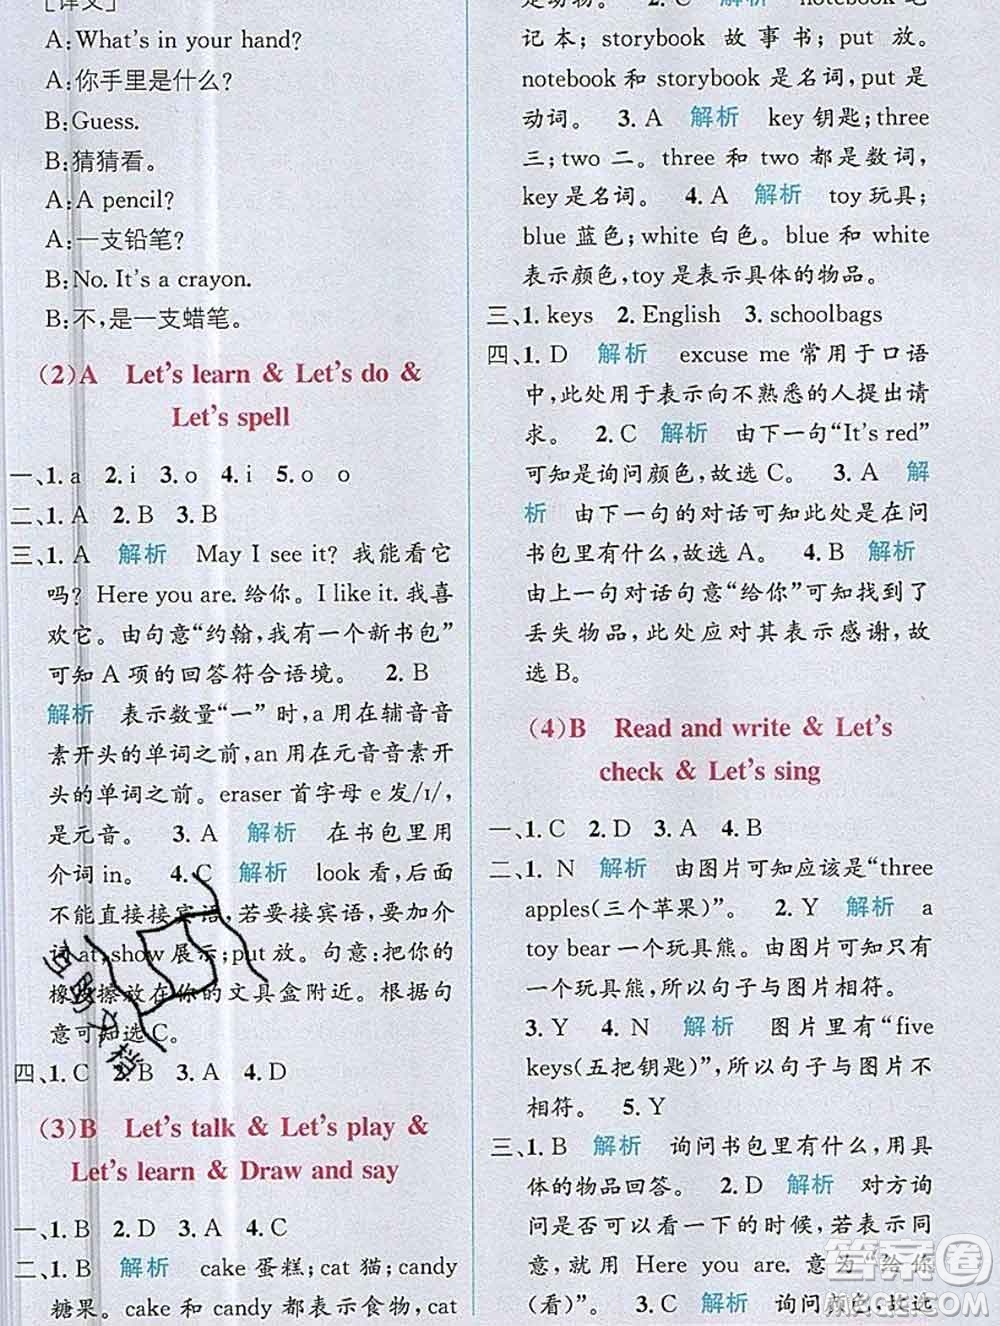 [译文]
A:What's in your hand?
A:你手里是什么?
B:Guess.
B:猜猜看。
A:A pencil?
A:一支铅笔?
B:No. It's a crayon.
B:不,是一支蜡笔。
(2)A Let's learn & Let's do &
Let's spell
一、1. a 2. i 3. o 4. i 5. o o
二、1. A 2. B 3. B
三、1. A 解析 May I see it? 我能看它
吗? Here you are. 给你。I like it. 我喜
欢它。由句意“约翰,我有一个新书包”
可知 A 项的回答符合语境。 2. B
解析 表示数量“一”时,a 用在辅音音
素开头的单词之前,an 用在元音音素开
头的单词之前。eraser 首字母 e 发/ɪ/,
是元音。 3. A 解析 在书包里用
介词 in。 4. C 解析 look 看,后面
不能直接接宾语,若要接宾语,要加介
词 at;show 展示;put 放。句意:把你的
橡皮擦放在你的文具盒附近。根据句
意可知选 C。
四、1. C 2. B 3. A 4. D
(3)B Let's talk & Let's play &
Let's learn & Draw and say
一、1. B 2. D 3. A 4. C
二、1. B 解析 cake 蛋糕;cat 猫;candy
糖果。cake 和 candy 都表示食物,cat
是动物。 2. C 解析 notebook 笔
记本;storybook 故事书;put 放。
notebook 和 storybook 是名词,put 是
动词。 3. A 解析 key 钥匙;three
三;two 二。three 和 two 都是数词,
key 是名词。 4. A 解析 toy 玩具;
blue 蓝色;white 白色。blue 和 white
表示颜色,toy 是表示具体的物品。
三、1. keys 2. English 3. schoolbags
四、1. D 解析 excuse me 常用于口语
中,此处用于表示向不熟悉的人提出请
求。 2. C 解析 由下一句“It's red”
可知是询问颜色,故选 C。 3. A 解
析 由下一句的对话可知此处是在问
书包里有什么,故选 A。 4. B 解析
由上一句对话句意“给你”可知找到了
丢失物品,此处应对其表示感谢,故
选 B。
(4)B Read and write & Let's
check & Let's sing
一、1. C 2. D 3. A 4. B
二、1. N 解析 由图片可知应该是“three
apples(三个苹果)”。 2. Y 解析 a
toy bear 一个玩具熊。由图片可知只有
一个玩具熊,所以句子与图片相符。
3. Y 4. N 解析 图片里有“five
keys(五把钥匙)”,所以句子与图片不
相符。 5. Y
三、1. B 解析 询问书包里有什么,用具
体的物品回答。 2. D 解析 对方询
问是否可以看一下的时候,若表示同
意,就用 Here you are. 意为“给你
(看)”。 3. C 解析 询问颜色,故选
互助文档
答案圈